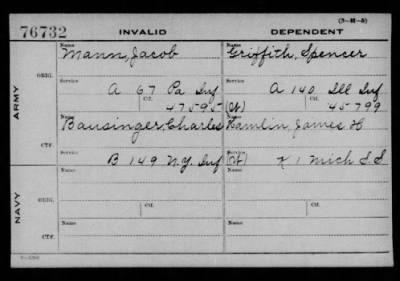 (3-M-5)
76732 INVALID DEPENDENT
Name Name
Mann, Jacob Griffith, Spencer
ORIG.
Service Service
A 67 Pa Inf A 140 Ill Inf
Ctf. Ctf.
47595 (Ct) 45799
ARMY
Name Name
Bausinger, Charles Hamlin, James H
CTF.
Service Service
B 149 N.Y. Inf (Ct) K 1 Mich S.S
Name Name
ORIG.
Service Service
Ctf. Ctf.
NAVY
Name Name
CTF.
Service Service